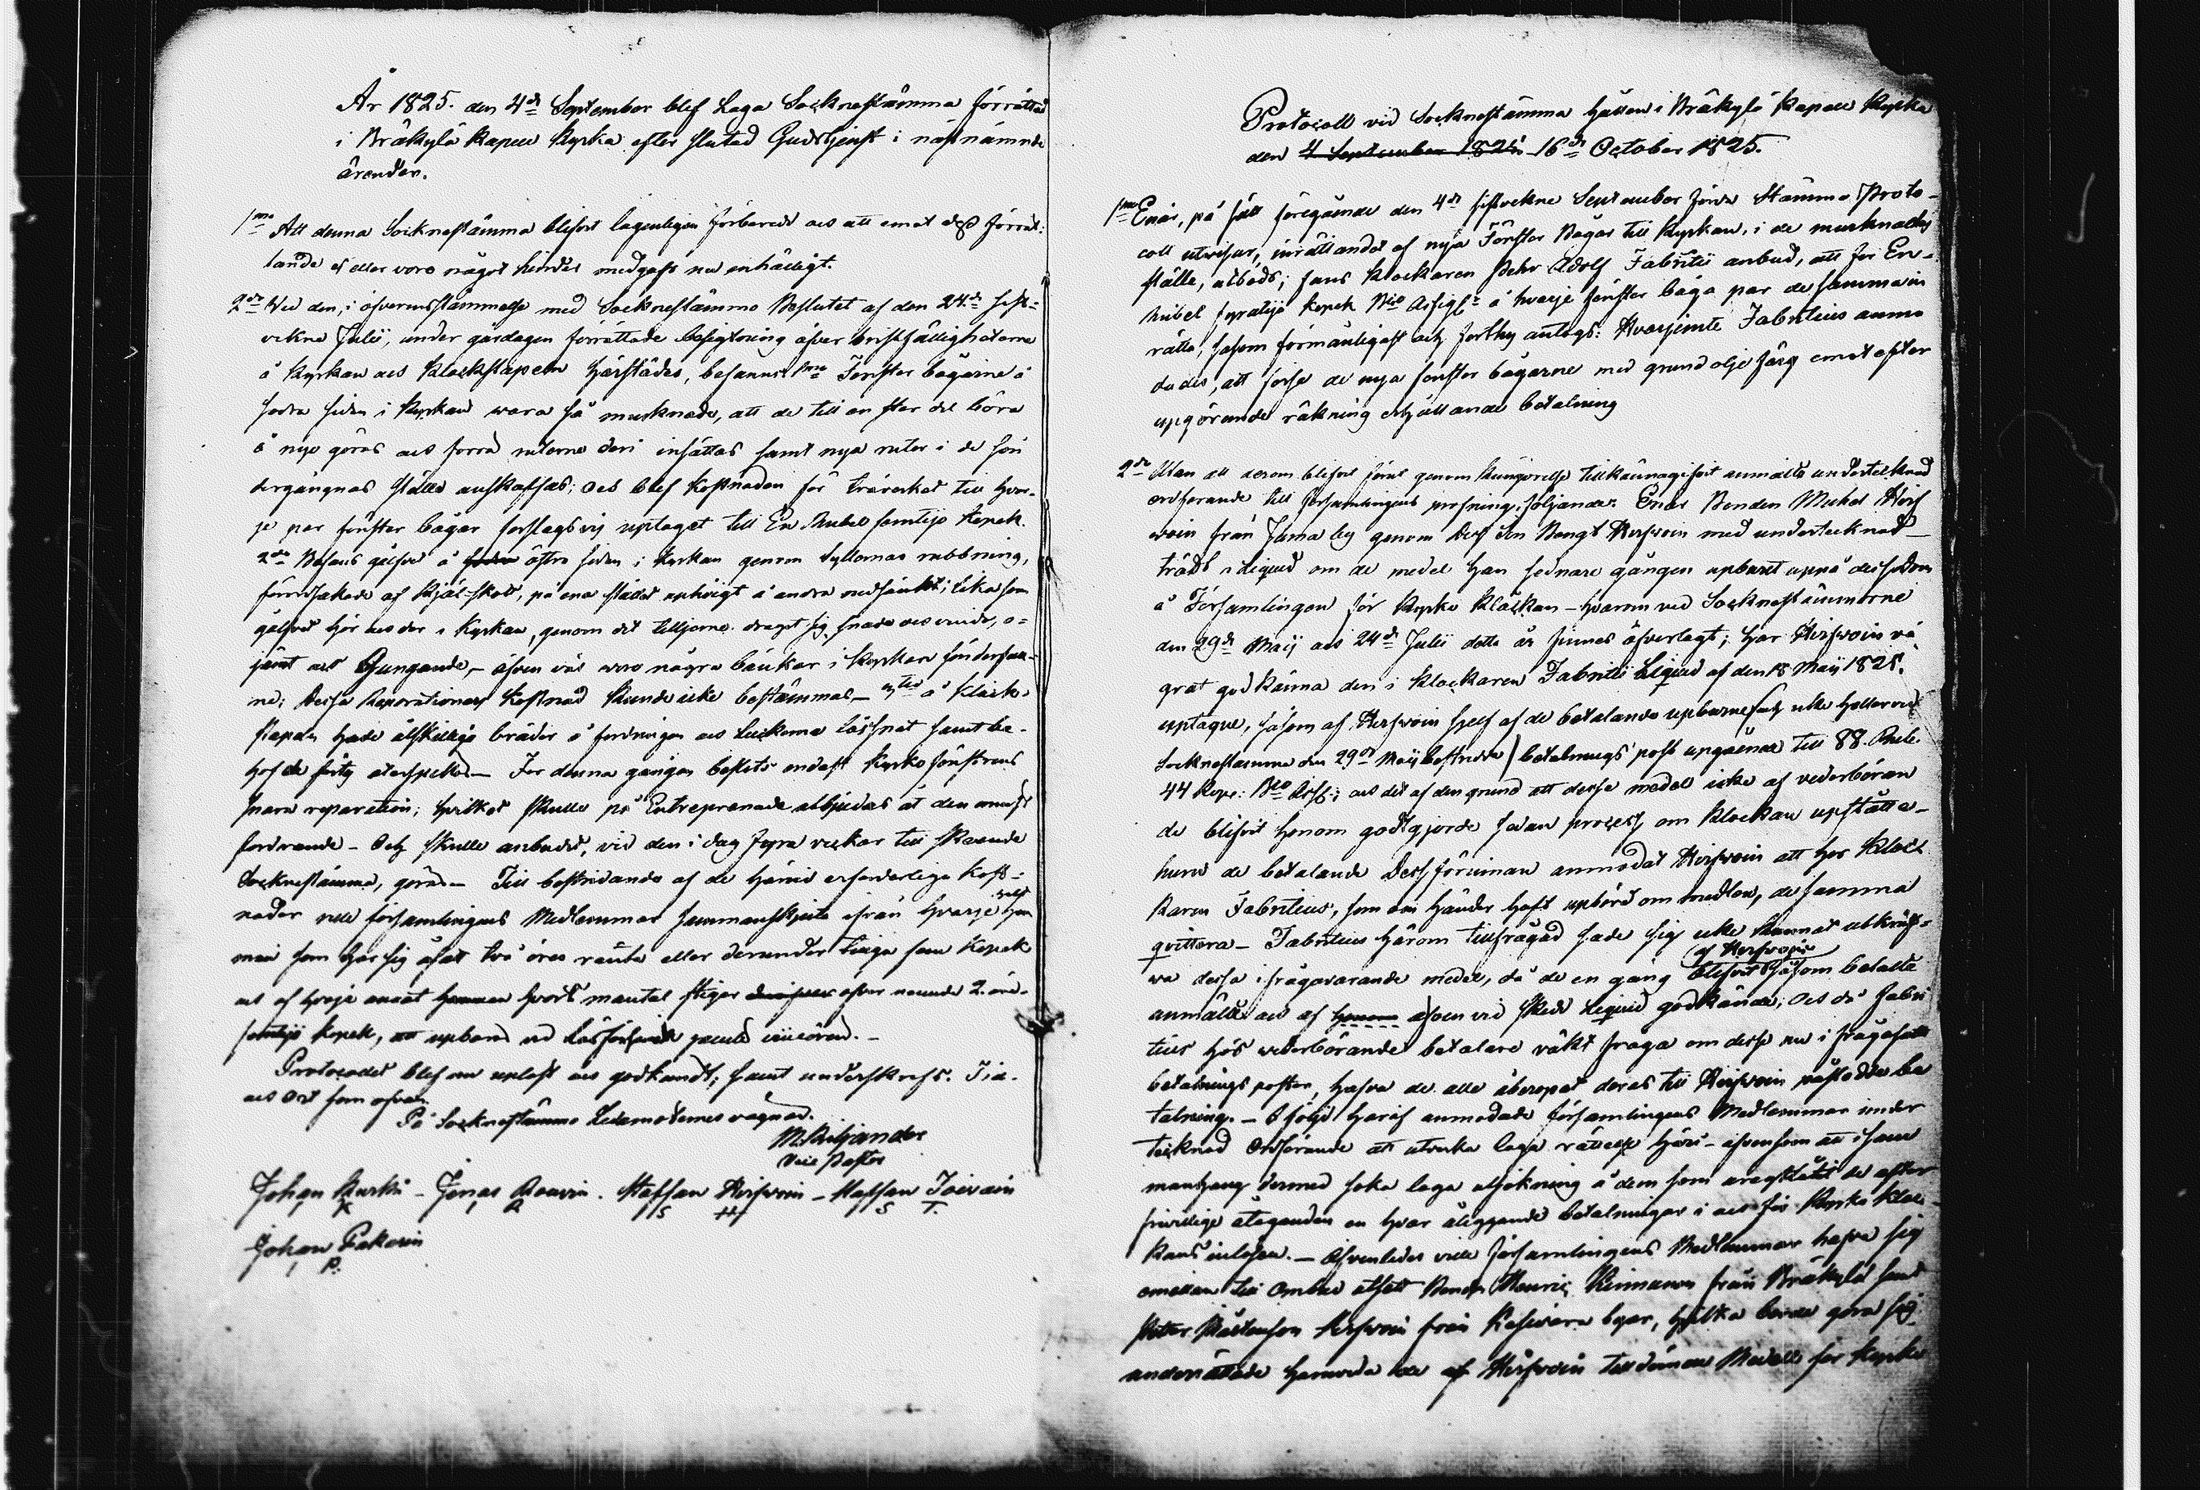 År 1825. den 4de September blef Laga Socknestämma förrättad
i Bräkylä Kapell Kyrka efter slutad Gudstjenst i näst nämnde
ärender.
1mo Att denna Socknestämma blifvit lagenligen förberedt och att emot dess förrät-
tande ej eller voro något hinder medgafs nu enhälligt.
2do Wid den, i öfverensstämmelse med Socknestämmo Beslutet af den 24de sist-
vekne Julii, under gårdagen förrättade besigtning öfver bristfälligheterne
å Kyrkan och Klockstapeln härstädes, befanns 1mo Fönster bågarne å
södra sidan i Kyrkan wara så murknade, att de till en stor del böra
å nyo göras och förra ruterne deri insättas samt nya ruter i de sön
dergångnas ställe anskaffas; och blef Kostnaden för träverket till hvar-
je par fönster bågar förslagsvis uptaget till En Rubel femtijo Kopek.
2do Befans golfvet å östra sidan i Kyrkan genom Syllornas rubbning,
förorsakade af Kjäl-skott, på ena stället uphöigt å andra nedsänkt; lika som
golfvet här och der i Kyrkan, genom det tilljorne dragit sig, snede och vinde, o-
jämt och Gungande, – äfven väl woro några bänkar i Kyrkan sönderfall-
ne; Dessa Reparationers Kostnad Kunde icke bestämmas – å Klock-
stapeln hade åtskillige bräder å fordringen och luckorne lossnat samt be-
hof de färg återspeltas – For denna gången beslöts endast Kyrko fönstrens
snara reparation; hvilket skulle på Entreprenade utbjudas åt den minst
fordrande – Och skulle anbudet, vid den i dag fyra veckor till skeende
Socknestämma, göras – Till bestridande af de härvid erforderlige Kost-
nader ville församlingens Medlemmar sammanskjuta ifrån hvarje
man som har sig åsatt två öres ränta eller derunder tiuga fem Kopek
och af hvarje annat hvars mantal stiger öfver nämnde 2. öre
femtijo Kopek, att upbäras vid
Protocollet blef nu upläst och godkändt; samt underskrefs. Tid
och Ort som ofvan
På Socknestämmo Ledamöternes vägnar.
M. Kiljander
Vice Pastor
Johan Kurki – Jonas Rouvin. Staffan Hirfvoin – Staffan Toivain
Johan Pakarin
Protocoll vid Socknestämma hållen i Bräkylä Kapell Kyrka
den 4 September 1825 16de October 1825.
1mo Enär, på sätt föregående den 4de sistvekne September förda Stämmo Proto-
coll utvisar, inrättandet af nya Fönster Bågar till Kyrkan, i de murknades
ställe, utböds; fans Klockaren Pehr Adolf Fabritii anbud, att for En
Rubel fyratijo Kopek Bco Assign. å hvarje fönster båga par de samma in
rätta, såsom förmånligast och forthy antogs: Hvarjemte Fabritius anmo
dades, att förse de nya fönster bågarne med grund olje färg emot efter
upgörande räkning erhållande betalning
2do Utan att derom blifvit förut genom Kungörelse tillkännagifvit anmälte undertecknad
ordförande till församlingens pröfning följande: Enär Bonden Mickel Hirf
voin från Jama by genom Dess Son Bengt Hirfvoin med undertecknad
trädt i liquid om de medel han sednare gången upburit uppå dessedom
å Församlingen för Kyrko Klockan – hvarom vid Socknestämmorne
den 29de Maij och 24de Julii detta år finnes öfverlagt; har Hirfvoin vä
grat godkänna den i Klockaren Fabritii Liquid af den 18 Maij 1825.
uptagne, såsom af Hirfvoin sjelf af de betalande upburne (och icke heller vid
Socknestämma den 29de Maij bestridde) betalnings post upgående till 88. Rub.
44 Kope: Bco Assg:; och det af den grund att desse medel icke af vederböran
de blifvit honom godtgjorde sedan process om Klockan upstått e-
huru de betalande Dessförinnan anmodat Hirfvoin att hos Klock
karen Fabritius, som om händer haft upbörd om medlen, de samma
qvittera – Fabritius härom tillfrågad sade sig icke kunnat utkräf-
va dessa ifrågavarande medel, då de en gång af Hirfvoin blifvit såsom betalte
anmälte och af äfven vid skedd Liquid godkände; Och då Fabri
tius hos vederbörande betalare väkt fraga om desse nu i frågasatte
betalnings poster, hafva de alle åberopat deras till Hirfvoin påstodde be
talning. – I följd häraf anmodade församlingens Medlemmar under
tecknad Ordförande att utverka laga rättelse häri – äfvensom att i sam
manhang dermed söka laga utsökning å dem som uraktlåtit de efter
friwillige åtaganden en hvar åliggande betalningar i och för Kyrko Kloc
kans inlösen. – Äfvenledes ville församlingens Medlemmar hafva sig
emellan till Ombud utsett Bonden Henric Kinnaren från Bräkylä samt
Petter Mårtenson Hirfvoin från Kesivara byar, hvilka borde göra sig
underrättade huruvida de af Hirfvoin till dömda Medell för Kyrko